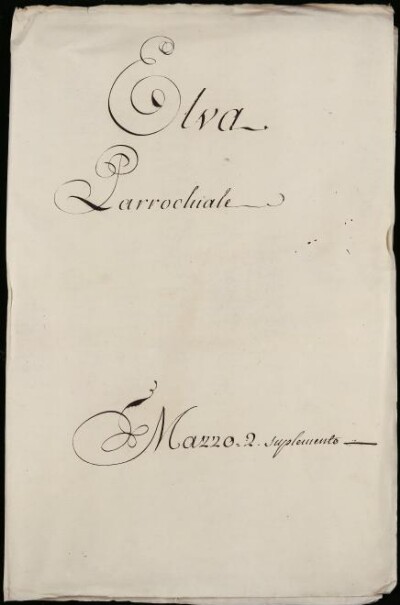 Elva.
Parrochiale
Mazzo. 2. suplemento